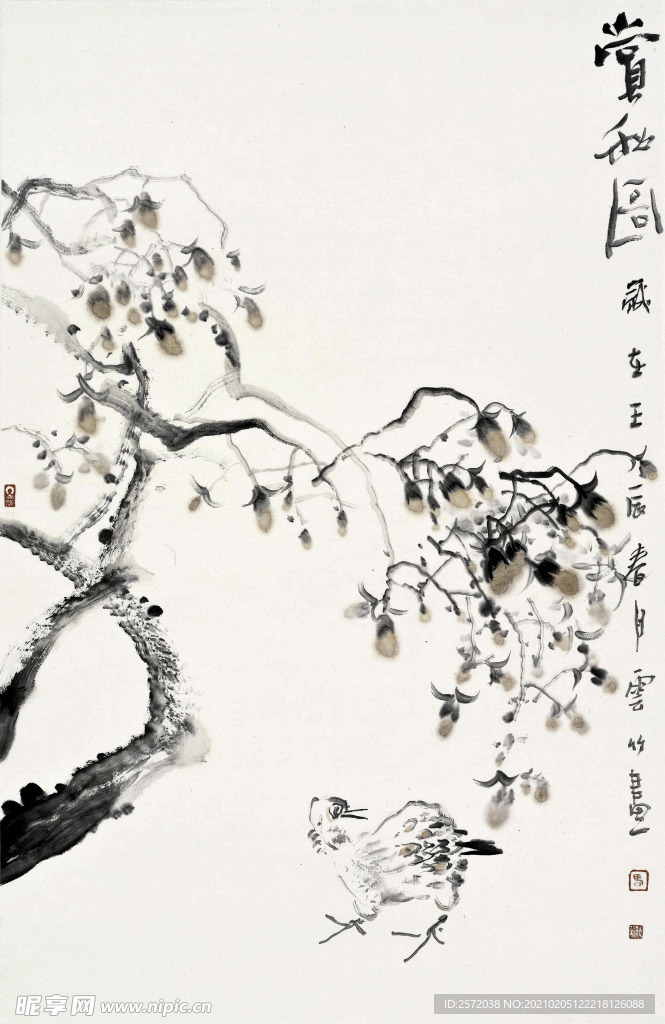 賞秋圖
歲在壬辰春月雲竹畫
馬
昵享网 www.nipic.cn
ID:2572038 NO:20210205122218126088